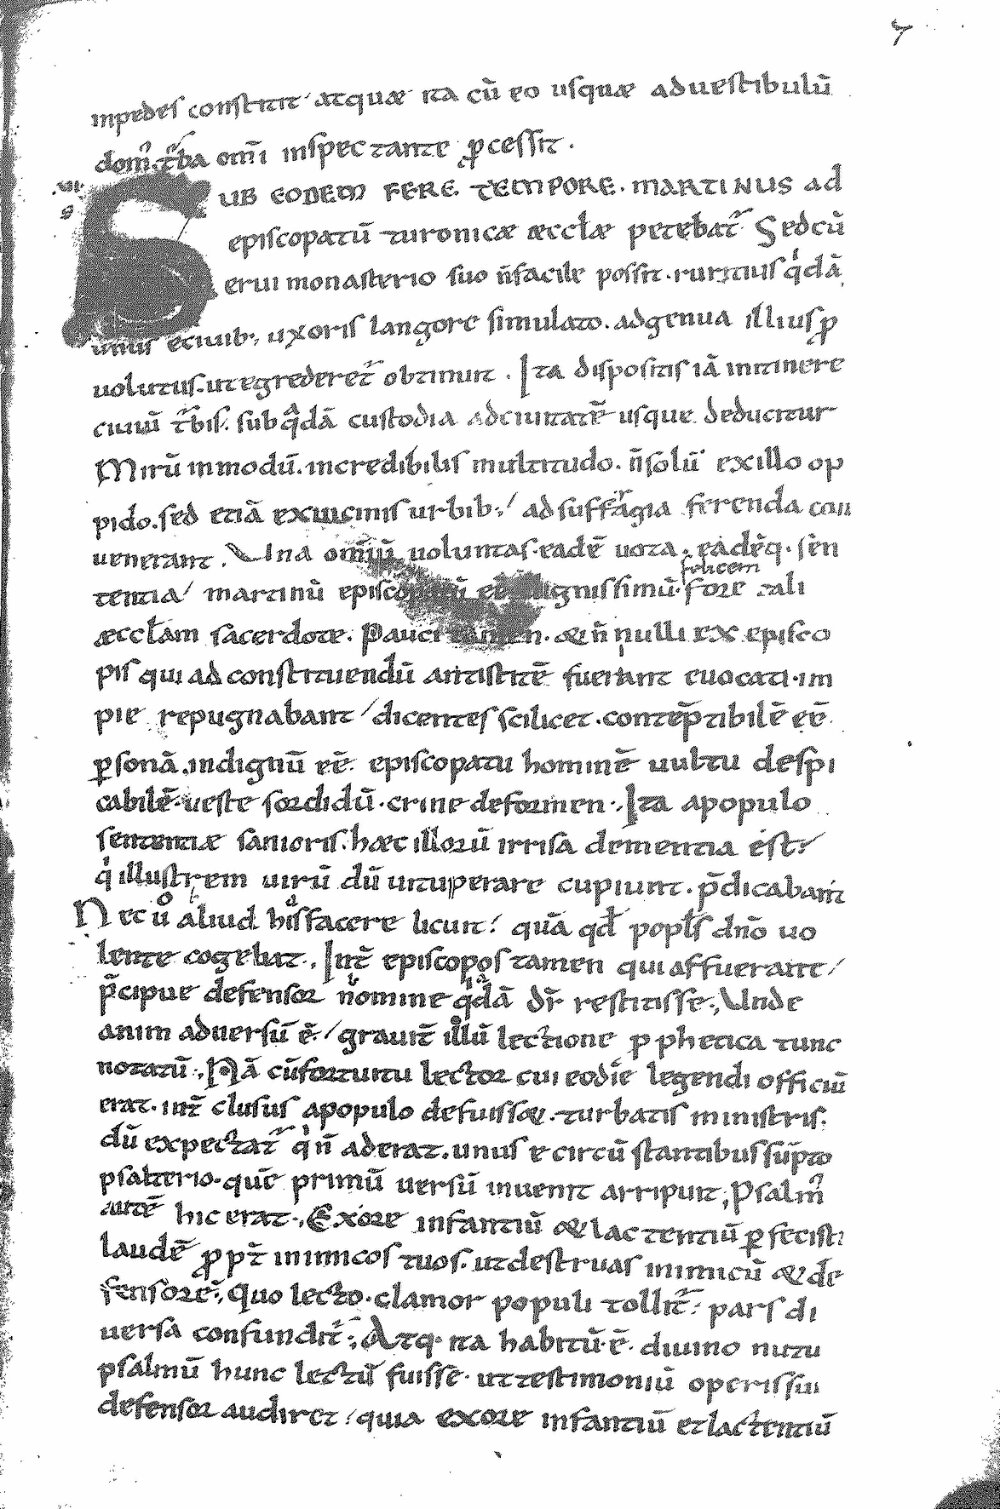 7
inpedes constitit atquæ ita cū eo usquæ aduestibulū
domꝰ. tᷣba om̄i inspectante ꝓcessit.
.VIII.
SUB EODEM FERE TEMPORE. MARTINUS ad
episcopatū turonicæ æccłæ petebat᷑ Sedcū
erui monasterio suo n̄facile possit. ruritius qͥdā
unus eciuib; uxoris langore simulato. adgenua illius ꝓ
uolutus. ut egrederet᷑ obtinuit. Ita dispositis iā initinere
ciuiū tᷣbis. subqᷓdā custodia adciuitatē usque deducitur
Mirū inmodū. incredibilis multitudo. n̄solū exillo op
pido. sed etiā exuicinis urbib; ad suffᷓgia ferenda con
uenerant. Una omiū uoluntas. eadē uota. eadēq. sen
felicem
tentia martinū episcopatū eē dignissimū. fore tali
æccłam sacerdote. Pauci tamen. & n̄nulli ex episco
pis qui ad constituendū antistitē fuerant euocati. im
pie repugnabant dicentes scilicet. contēptibilē eē
ꝑsonā. indignū eē. episcopatu hominē uultu despi
cabilē. ueste sordidū. crine deformen. Ita apopulo
sententiæ sanioris. hæc illorū irrisa dementia est
qͥ illustrem uirū dū uituperare cupiunt. p̄dicabant
Nec uͦ aliud hisfacere licuit quā qđ popłs dn̄o uo
lente cogebat. Int̄ episcopos tamen qui affuerant
p̄cipue defensor nomine qͥdā dr̄ restitisse; Unde
anim aduersū ē. grauit̄ illū lectione ꝓphetica tunc
notatū. Nā cūfortuitu lector cui eodie legendi officiū
erat. int̄ clusus apopulo defuiss&. turbatis ministris.
dū expectat᷑ qͥ n̄ aderat. unus e circū stantibus sūpto
psalterio. quē primū uersū inuenit arripuit; Psalmꝰ
autē hic erat. Exore infantiū & lactentiū ꝑfecisti
laudē ꝓpt̄ inimicos tuos. ut destruas inimicū & de
fensorē. Quo lecto. clamor populi tollit᷑. pars di
uersa confundit᷑; Atq. ita habitū. ē. diuino nutu
psalmū hunc lectū fuisse. ut testimoniū operis sui
defensor audiret quia exore infantiū etlactentiū